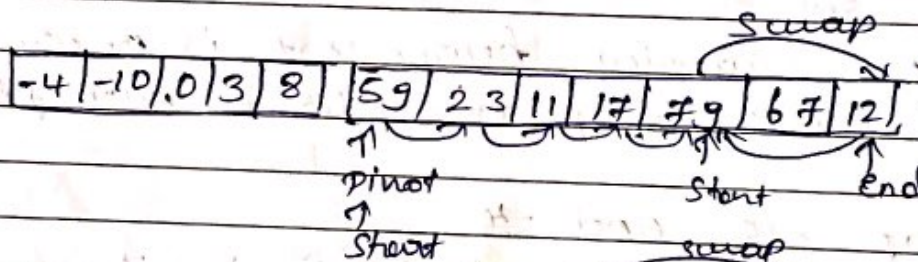 Swap
-4 -10 .0 3 8 59 23 11 17 79 67 12
Pivot Start End
Start
swap